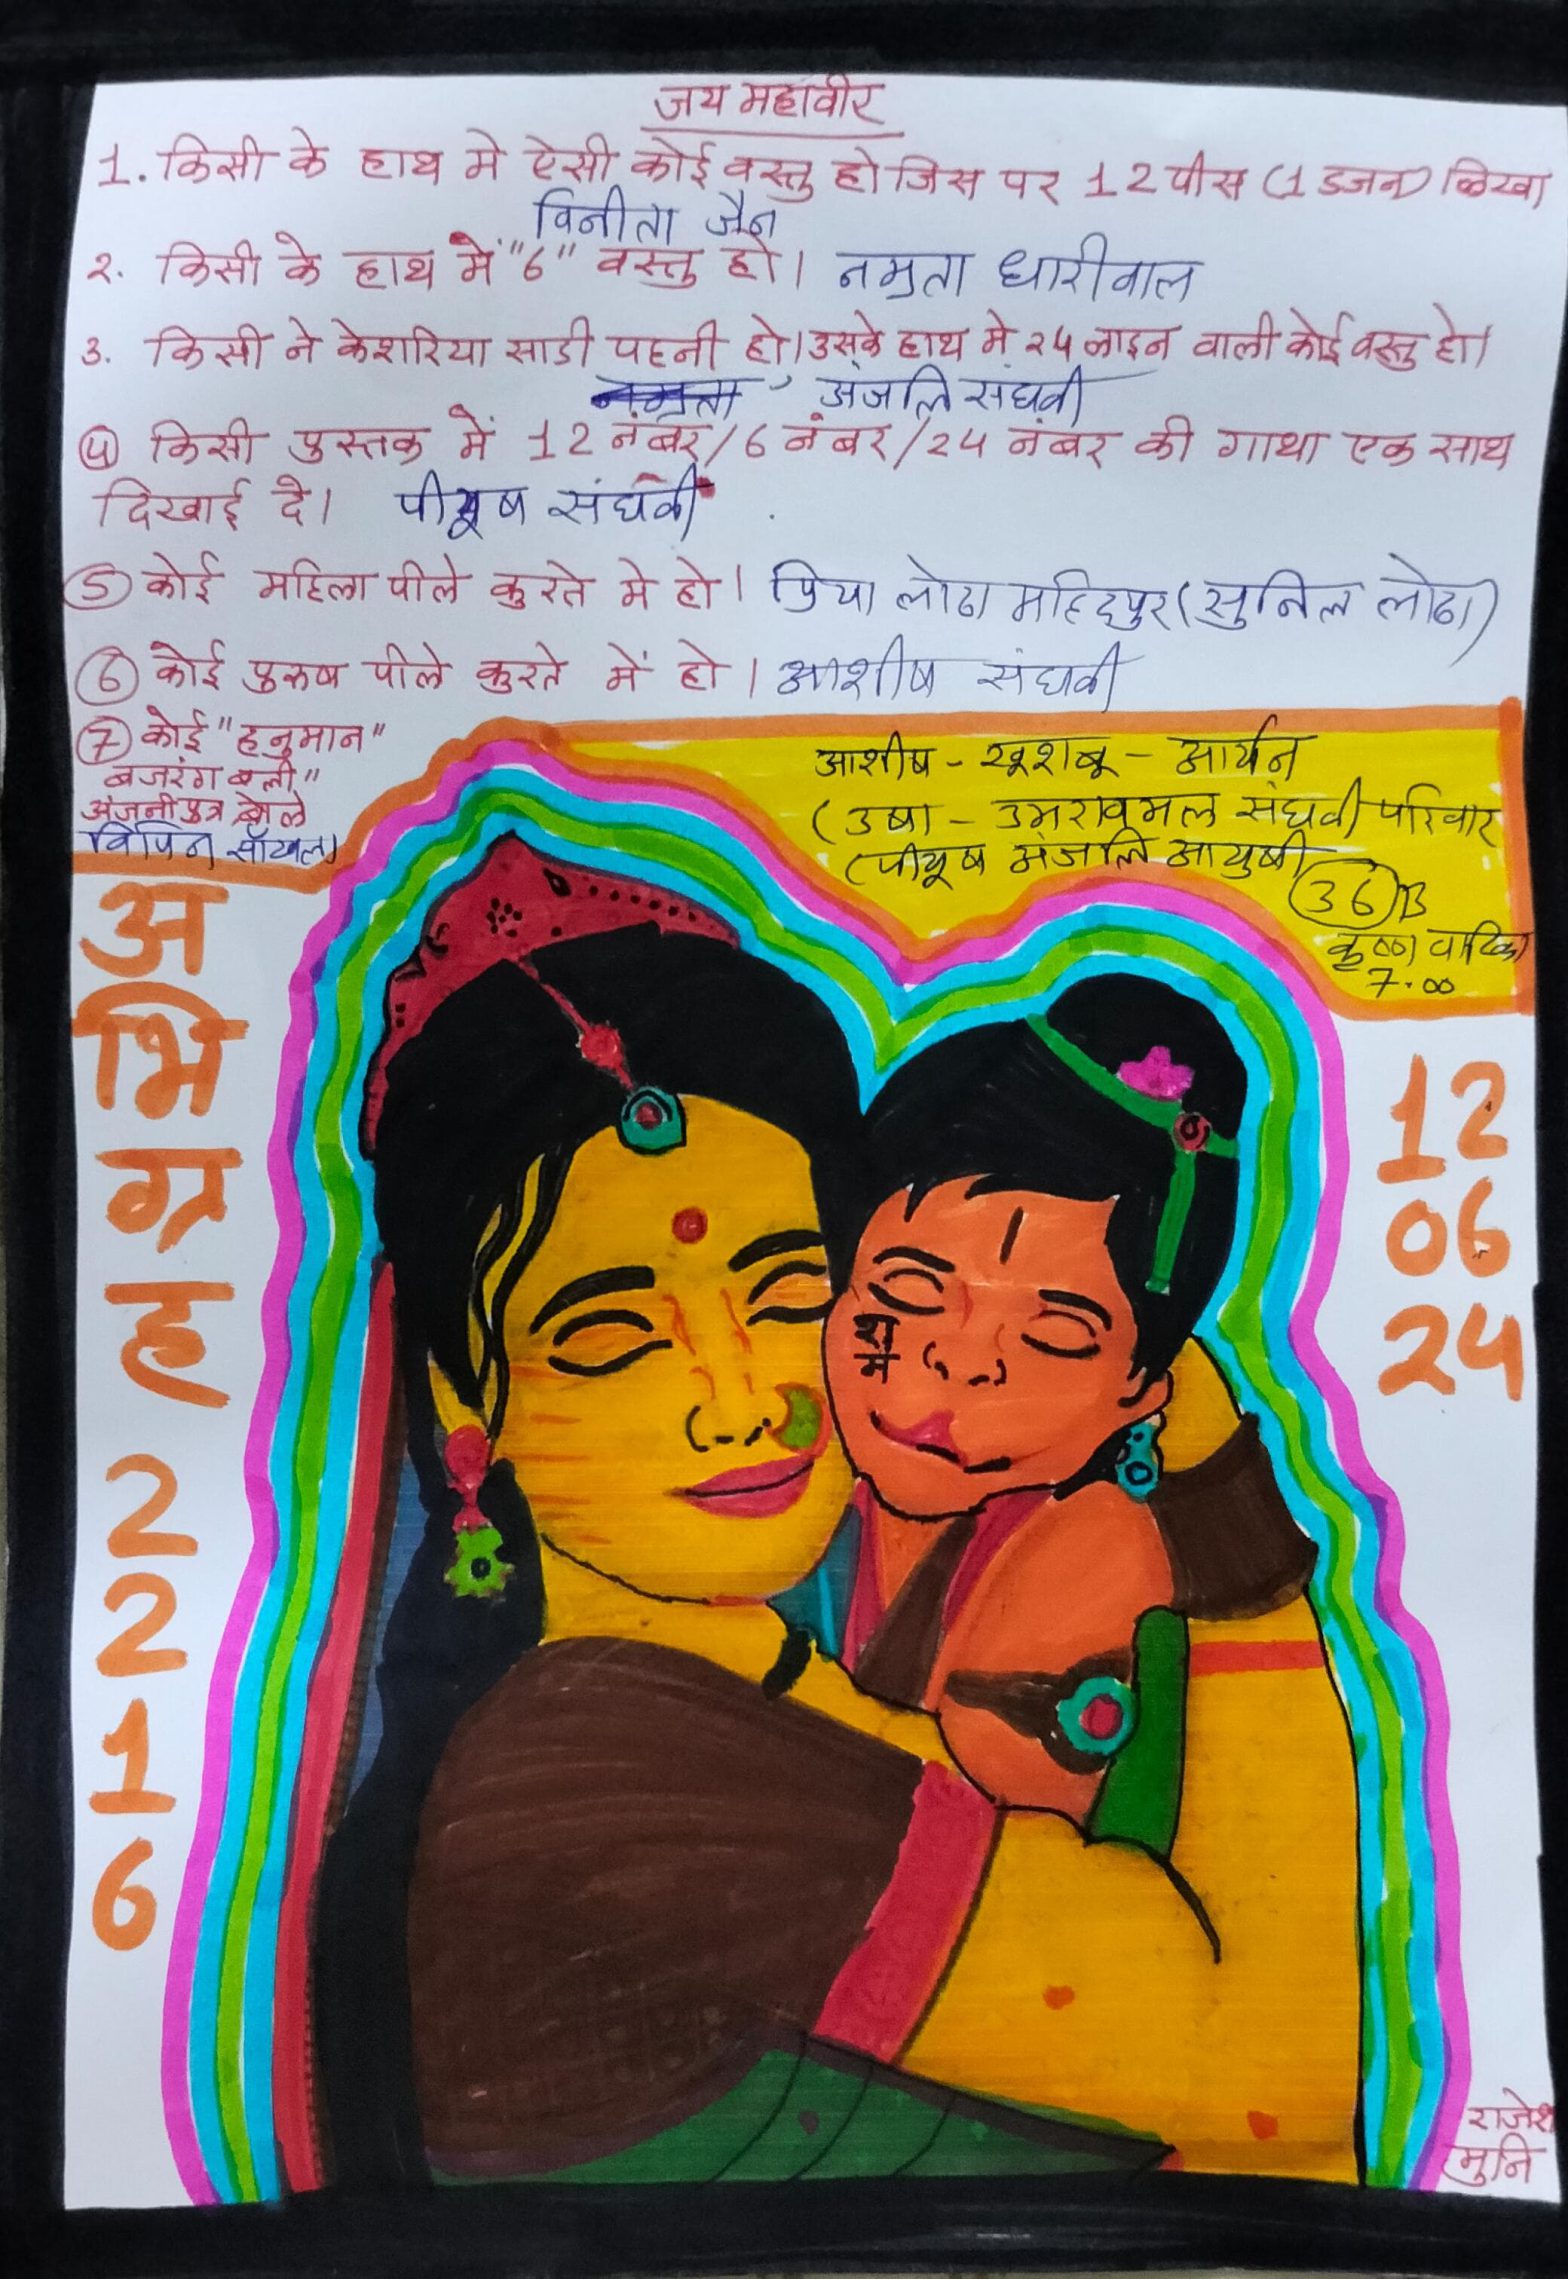 जय महावीर
1. किसी के हाथ मे ऐसी कोई वस्तु हो जिस पर 12 पीस (1 डजन) लिखा
विनीता जैन
२. किसी के हाथ में "6" वस्तु हो। नम्रता धारीवाल
3. किसी ने केशरिया साडी पहनी हो। उसके हाथ मे २४ लाइन वाली कोई वस्तु हो।
अंजलि संघवी
④ किसी पुस्तक में 12 नंबर/6 नंबर/24 नंबर की गाथा एक साथ
दिखाई दे। पीयूष संघवी
⑤ कोई महिला पीले कुरते मे हो। प्रिया लोढा महिदपुर (सुनिल लोढा)
⑥ कोई पुरुष पीले कुरते में हो। आशीष संघवी
⑦ कोई "हनुमान"
बजरंग बली"
अंजनी पुत्र बोले
विपिन
आशीष - खूशबू - आर्यन
(उषा - उमरावमल संघवी परिवार
(पीयूष अंजलि आयुषी
36 B
कृष्ण वाटिका
7.00
अ
भि
ग्र
ह
2
2
1
6
12
06
24
रा
म
राजेश
मुनि